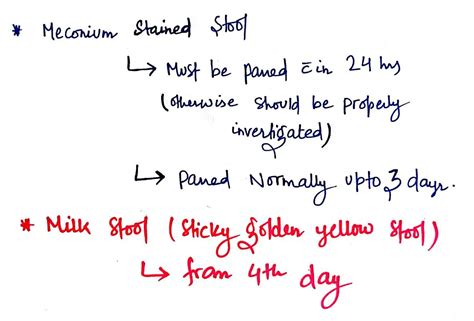 * Meconium Stained Stool
↳ Must be passed c̄in 24 hrs
(otherwise should be properly
investigated)
↳ passed Normally upto 3 days.
* Milk Stool (sticky golden yellow stool)
↳ from 4th day